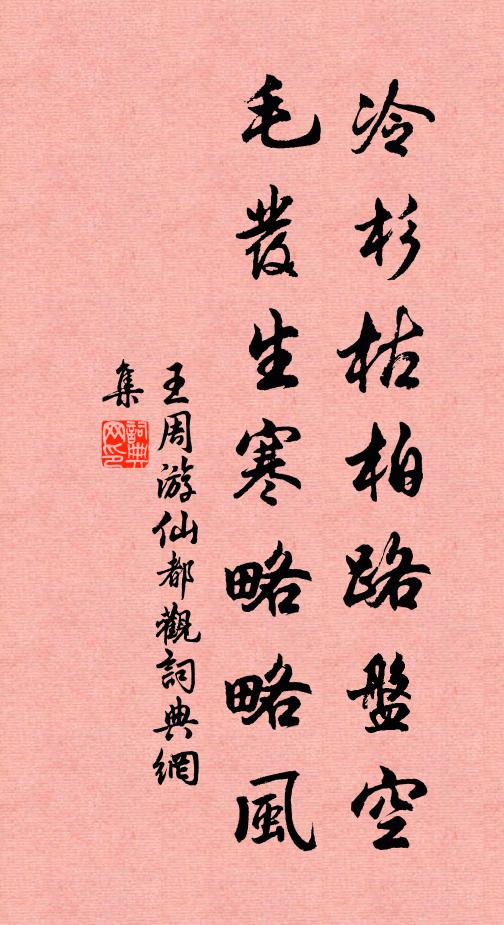 冷杉枯柏路盤空
毛發生寒略略風
王周游仙都觀詞典網
集
詞典網印